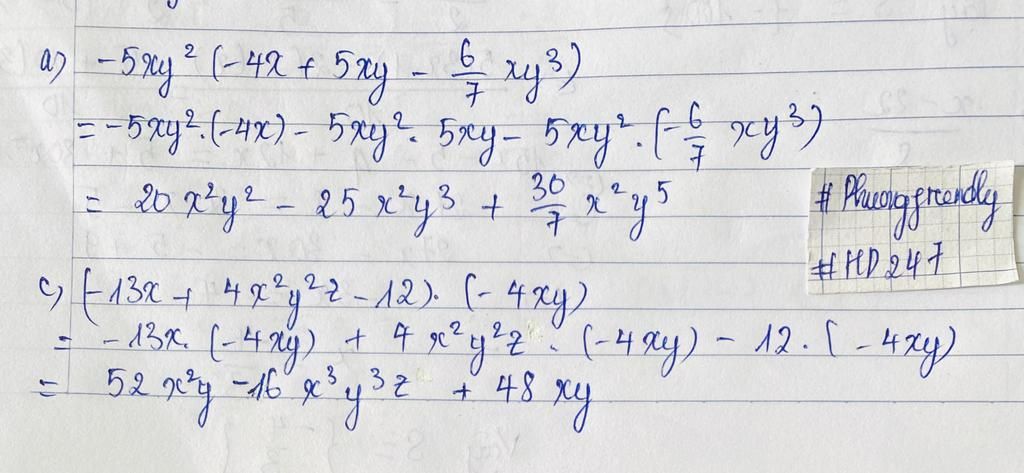 a) -5xy² (-4x + 5xy - 6/7 xy³)
= -5xy².(-4x) - 5xy². 5xy - 5xy². (-6/7 xy³)
= 20x²y² - 25x²y³ + 30/7 x²y⁵
# Phuongfreendly
# HD247
c) (-13x + 4x²y²z - 12). (-4xy)
= -13x. (-4xy) + 4x²y²z . (-4xy) - 12. (-4xy)
= 52x²y - 16x³y³z + 48xy